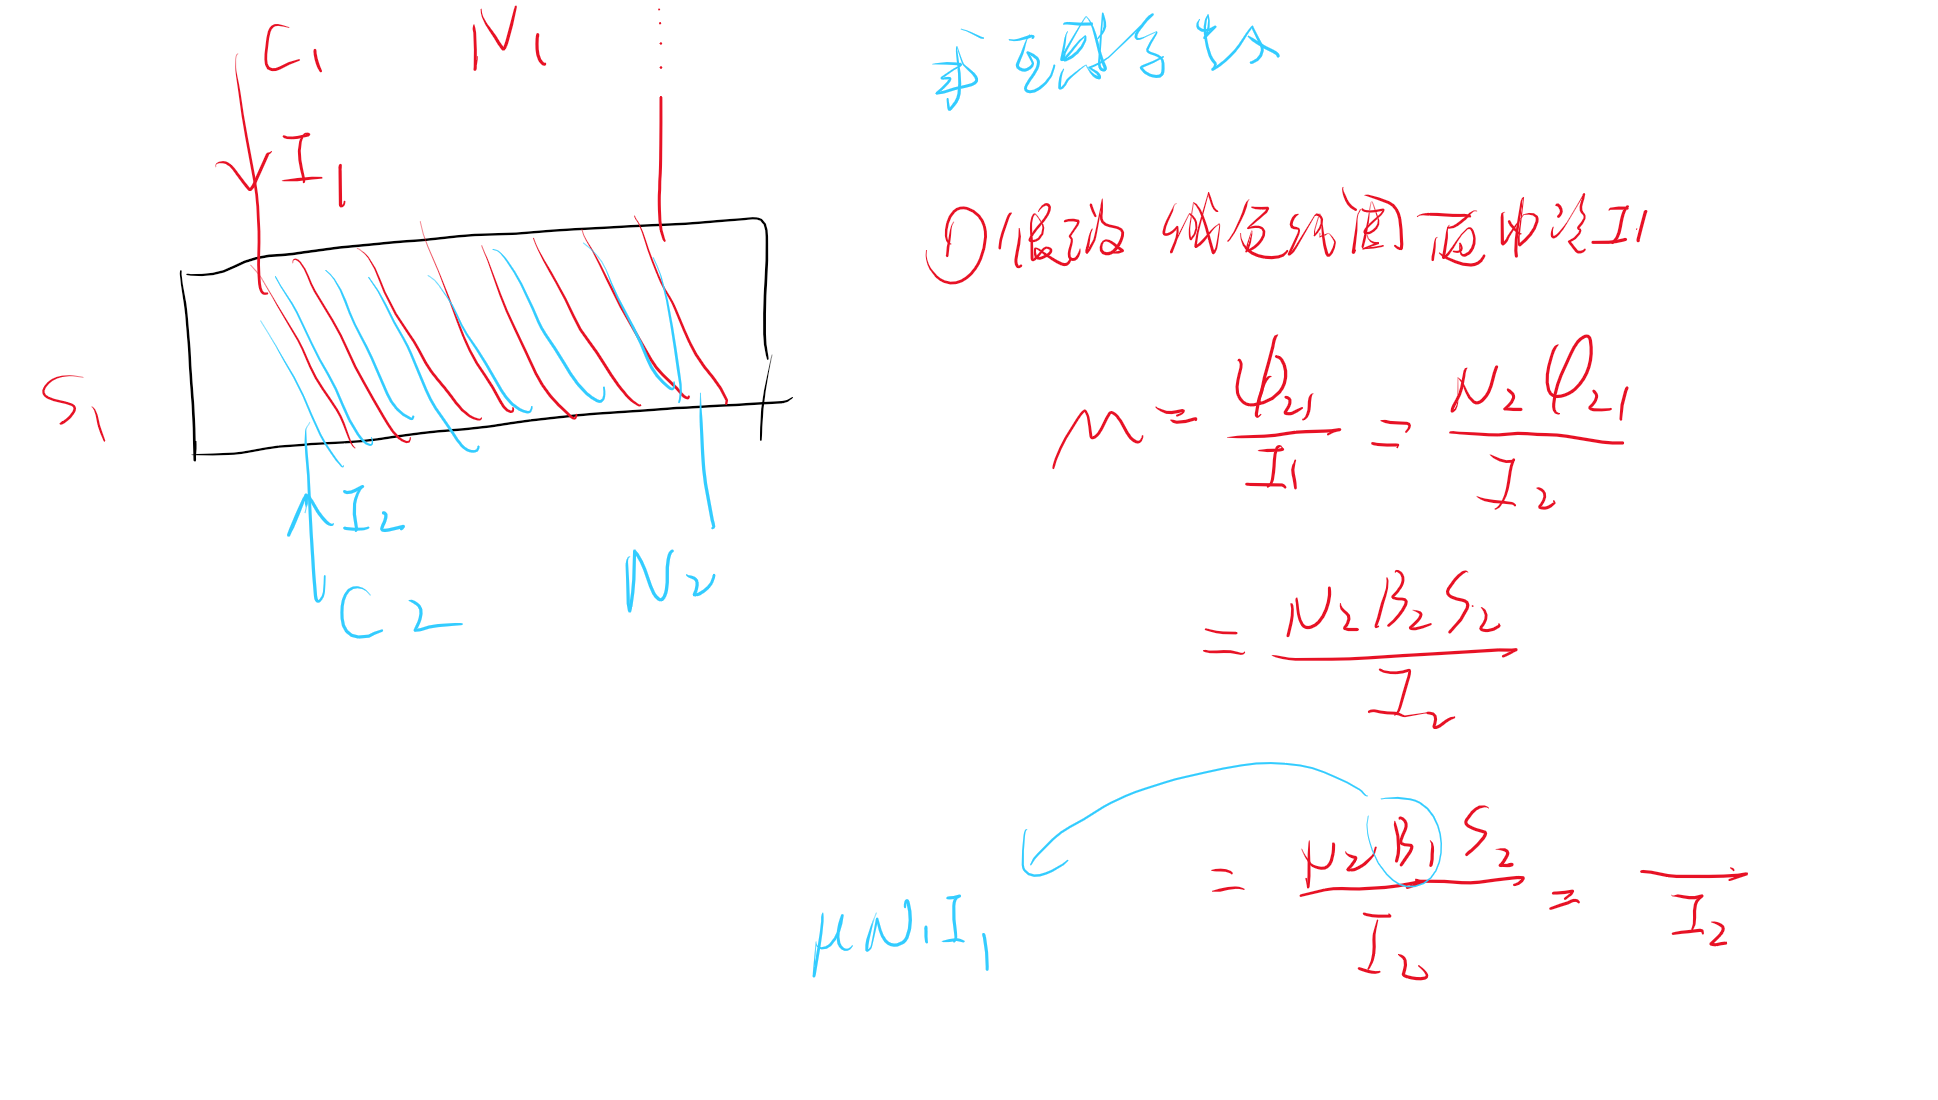 C₁ N₁
I₁
S₁
I₂
C2 N₂
求互感系数
①假设 线圈 通电流I₁
M = ψ₂₁/I₁ = N₂φ₂₁/I₂
= N₂B₂S₂/I₂
= N₂B₁S₂/I₂ = /I₂
μN₁I₁